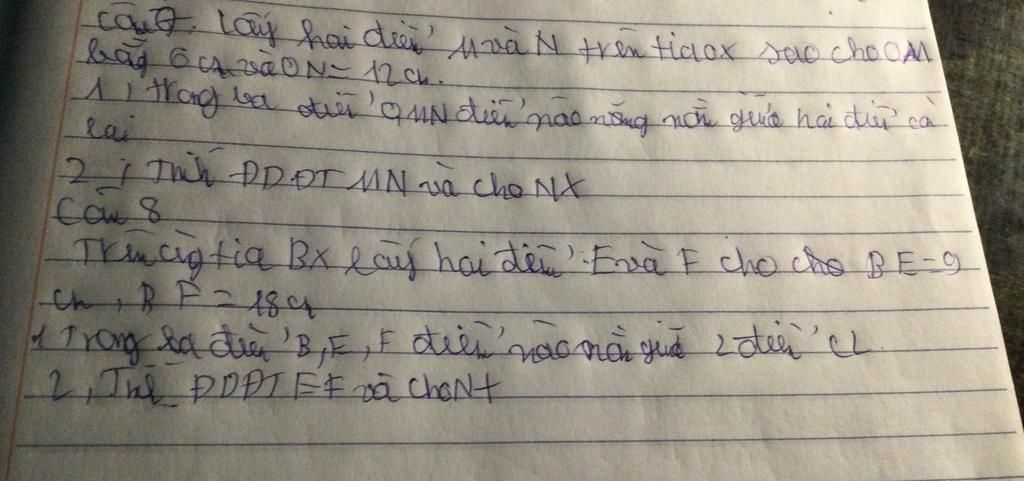 Câu 7. Lấy hai điểm M và N trên tia ox sao cho OM
bằng 6 cm và ON = 12 cm.
1, trong ba điểm OMN điểm nào nằm giữa hai điểm còn
lại
2, Tính ĐDĐT MN và cho NX
Câu 8
Trên cùng tia Bx lấy hai điểm E và F cho cho BE = 9
cm, BF = 18 cm
1 Trong ba điểm B, E, F điểm nào nằm giữa 2 điểm CL
2, Tính ĐDĐT EF và cho Nt